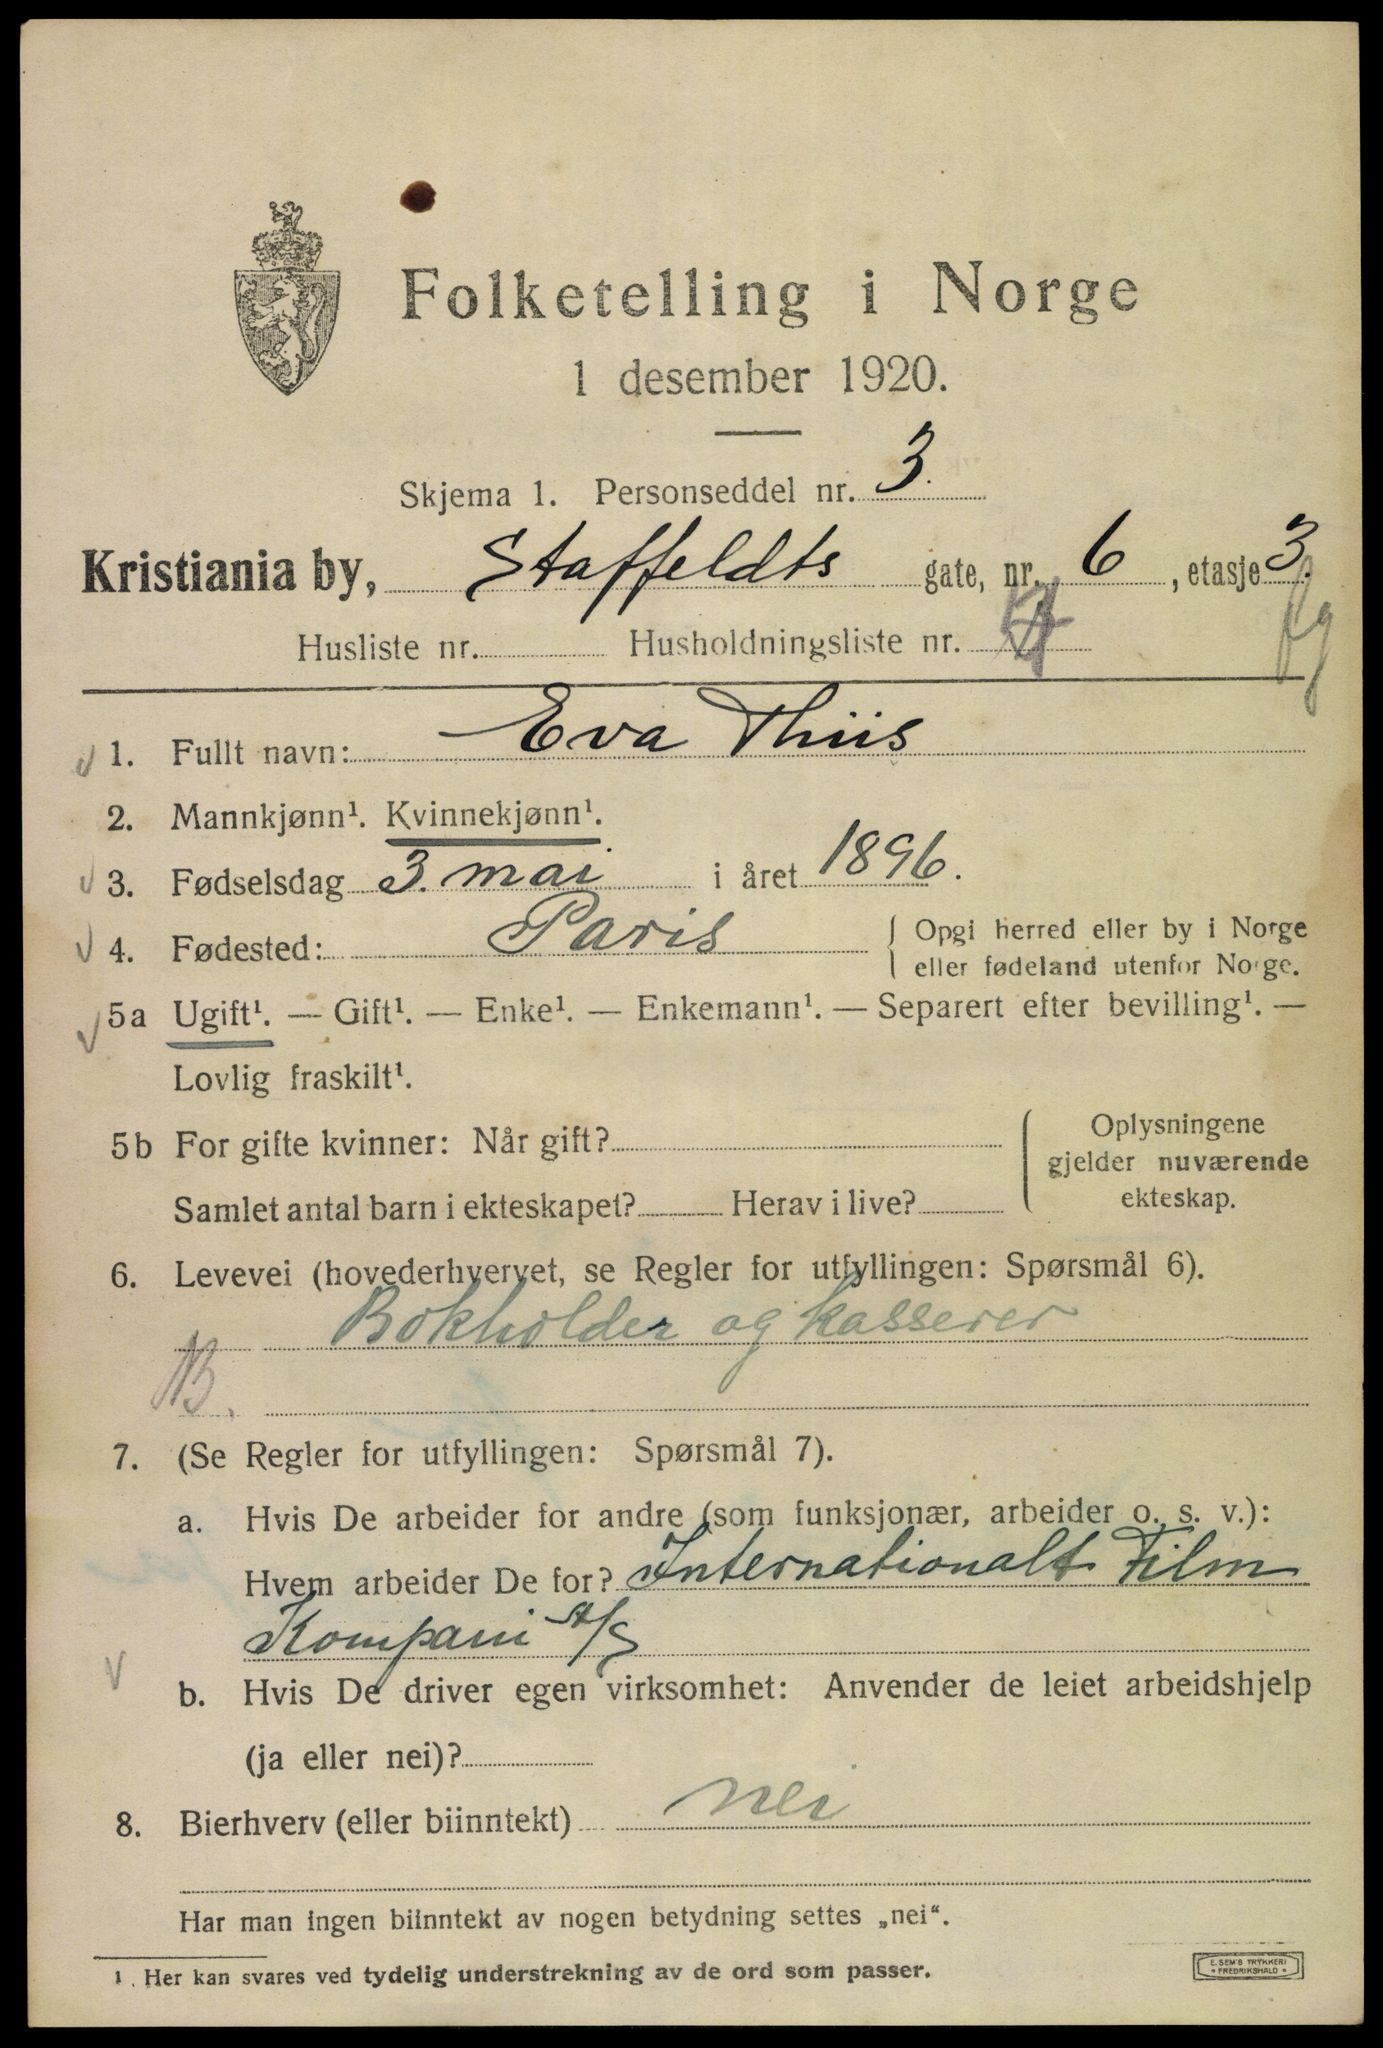 Folketelling i Norge
1 desember 1920.
Skjema 1. Personseddel nr. 3.
Kristiania by, Staffeldts gate, nr. 6, etasje 3.
Husliste nr. Husholdningsliste nr.
1. Fullt navn: Eva Thiis
2. Mannkjønn¹. Kvinnekjønn¹.
3. Fødselsdag 3. mai i året 1896.
4. Fødested: Paris { Opgi herred eller by i Norge
eller fødeland utenfor Norge.
5a Ugift¹. — Gift¹. — Enke¹. — Enkemann¹. — Separert efter bevilling¹. —
Lovlig fraskilt¹.
5b For gifte kvinner: Når gift?
Samlet antal barn i ekteskapet? Herav i live?
{ Oplysningene
gjelder nuværende
ekteskap.
6. Levevei (hovederhvervet, se Regler for utfyllingen: Spørsmål 6).
Bokholder og kasserer
7. (Se Regler for utfyllingen: Spørsmål 7).
a. Hvis De arbeider for andre (som funksjonær, arbeider o. s. v.):
Hvem arbeider De for? Internationalt Film
Kompani A/S
b. Hvis De driver egen virksomhet: Anvender de leiet arbeidshjelp
(ja eller nei)?
8. Bierhverv (eller biinntekt) nei
Har man ingen biinntekt av nogen betydning settes „nei“.
1. Her kan svares ved tydelig understrekning av de ord som passer.
E. SEM'S TRYKKERI
* FREDRIKSHALD *